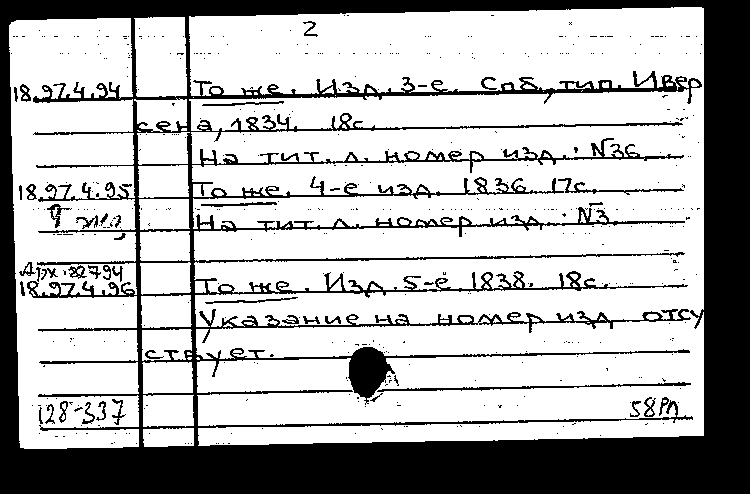 2
18.97.4.94 То же. Изд. 3-е. Спб., тип. Ивер
сена, 1834. 18с.
На тит. л. номер изд.: N36
18.97.4.95 То же. 4-е изд. 1836. 17с.
На тит. л. номер изд.: N3.
Арх. 22794
18.97.4.96 То же. Изд. 5-е 1838. 18с.
Указание на номер изд отсу
ствует.
128-337 58РЛ